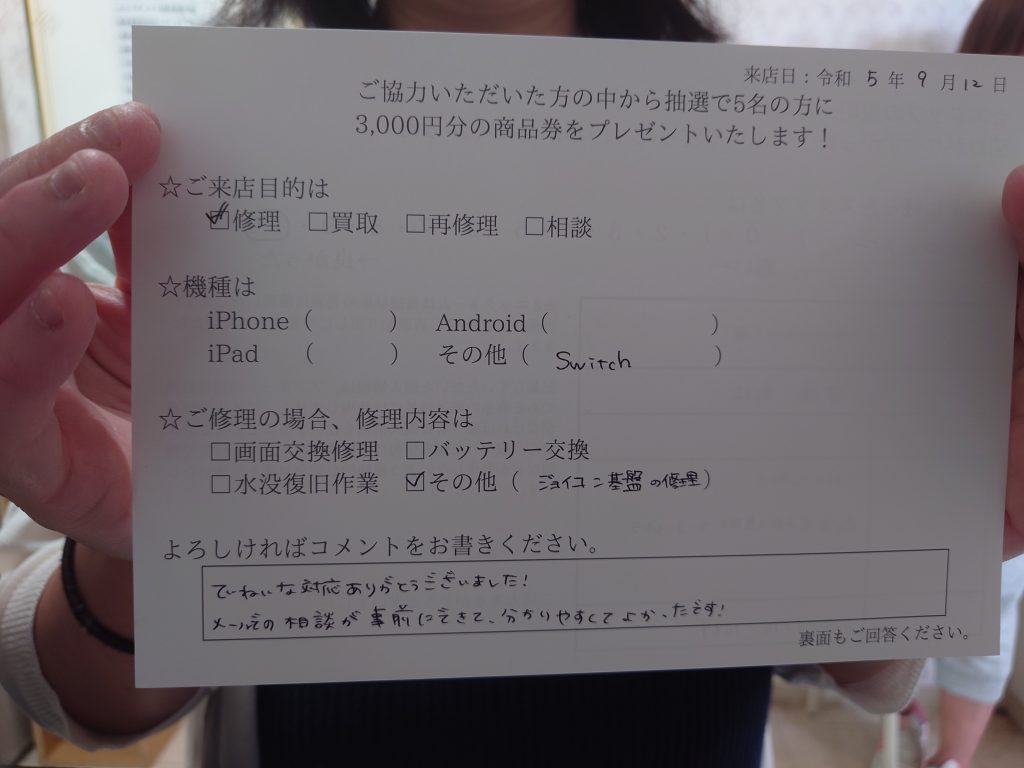 来店日:令和 5 年 9 月 12 日
ご協力いただいた方の中から抽選で5名の方に
3,000円分の商品券をプレゼントいたします!
☆ご来店目的は
☑修理 □買取 □再修理 □相談
☆機種は
iPhone( ) Android( )
iPad ( ) その他( Switch )
☆ご修理の場合、修理内容は
□画面交換修理 □バッテリー交換
□水没復旧作業 ☑その他( ジョイコン基盤の修理)
よろしければコメントをお書きください。
ていねいな対応ありがとうございました!
メールでの相談が事前にできて、分かりやすくてよかったです!
裏面もご回答ください。